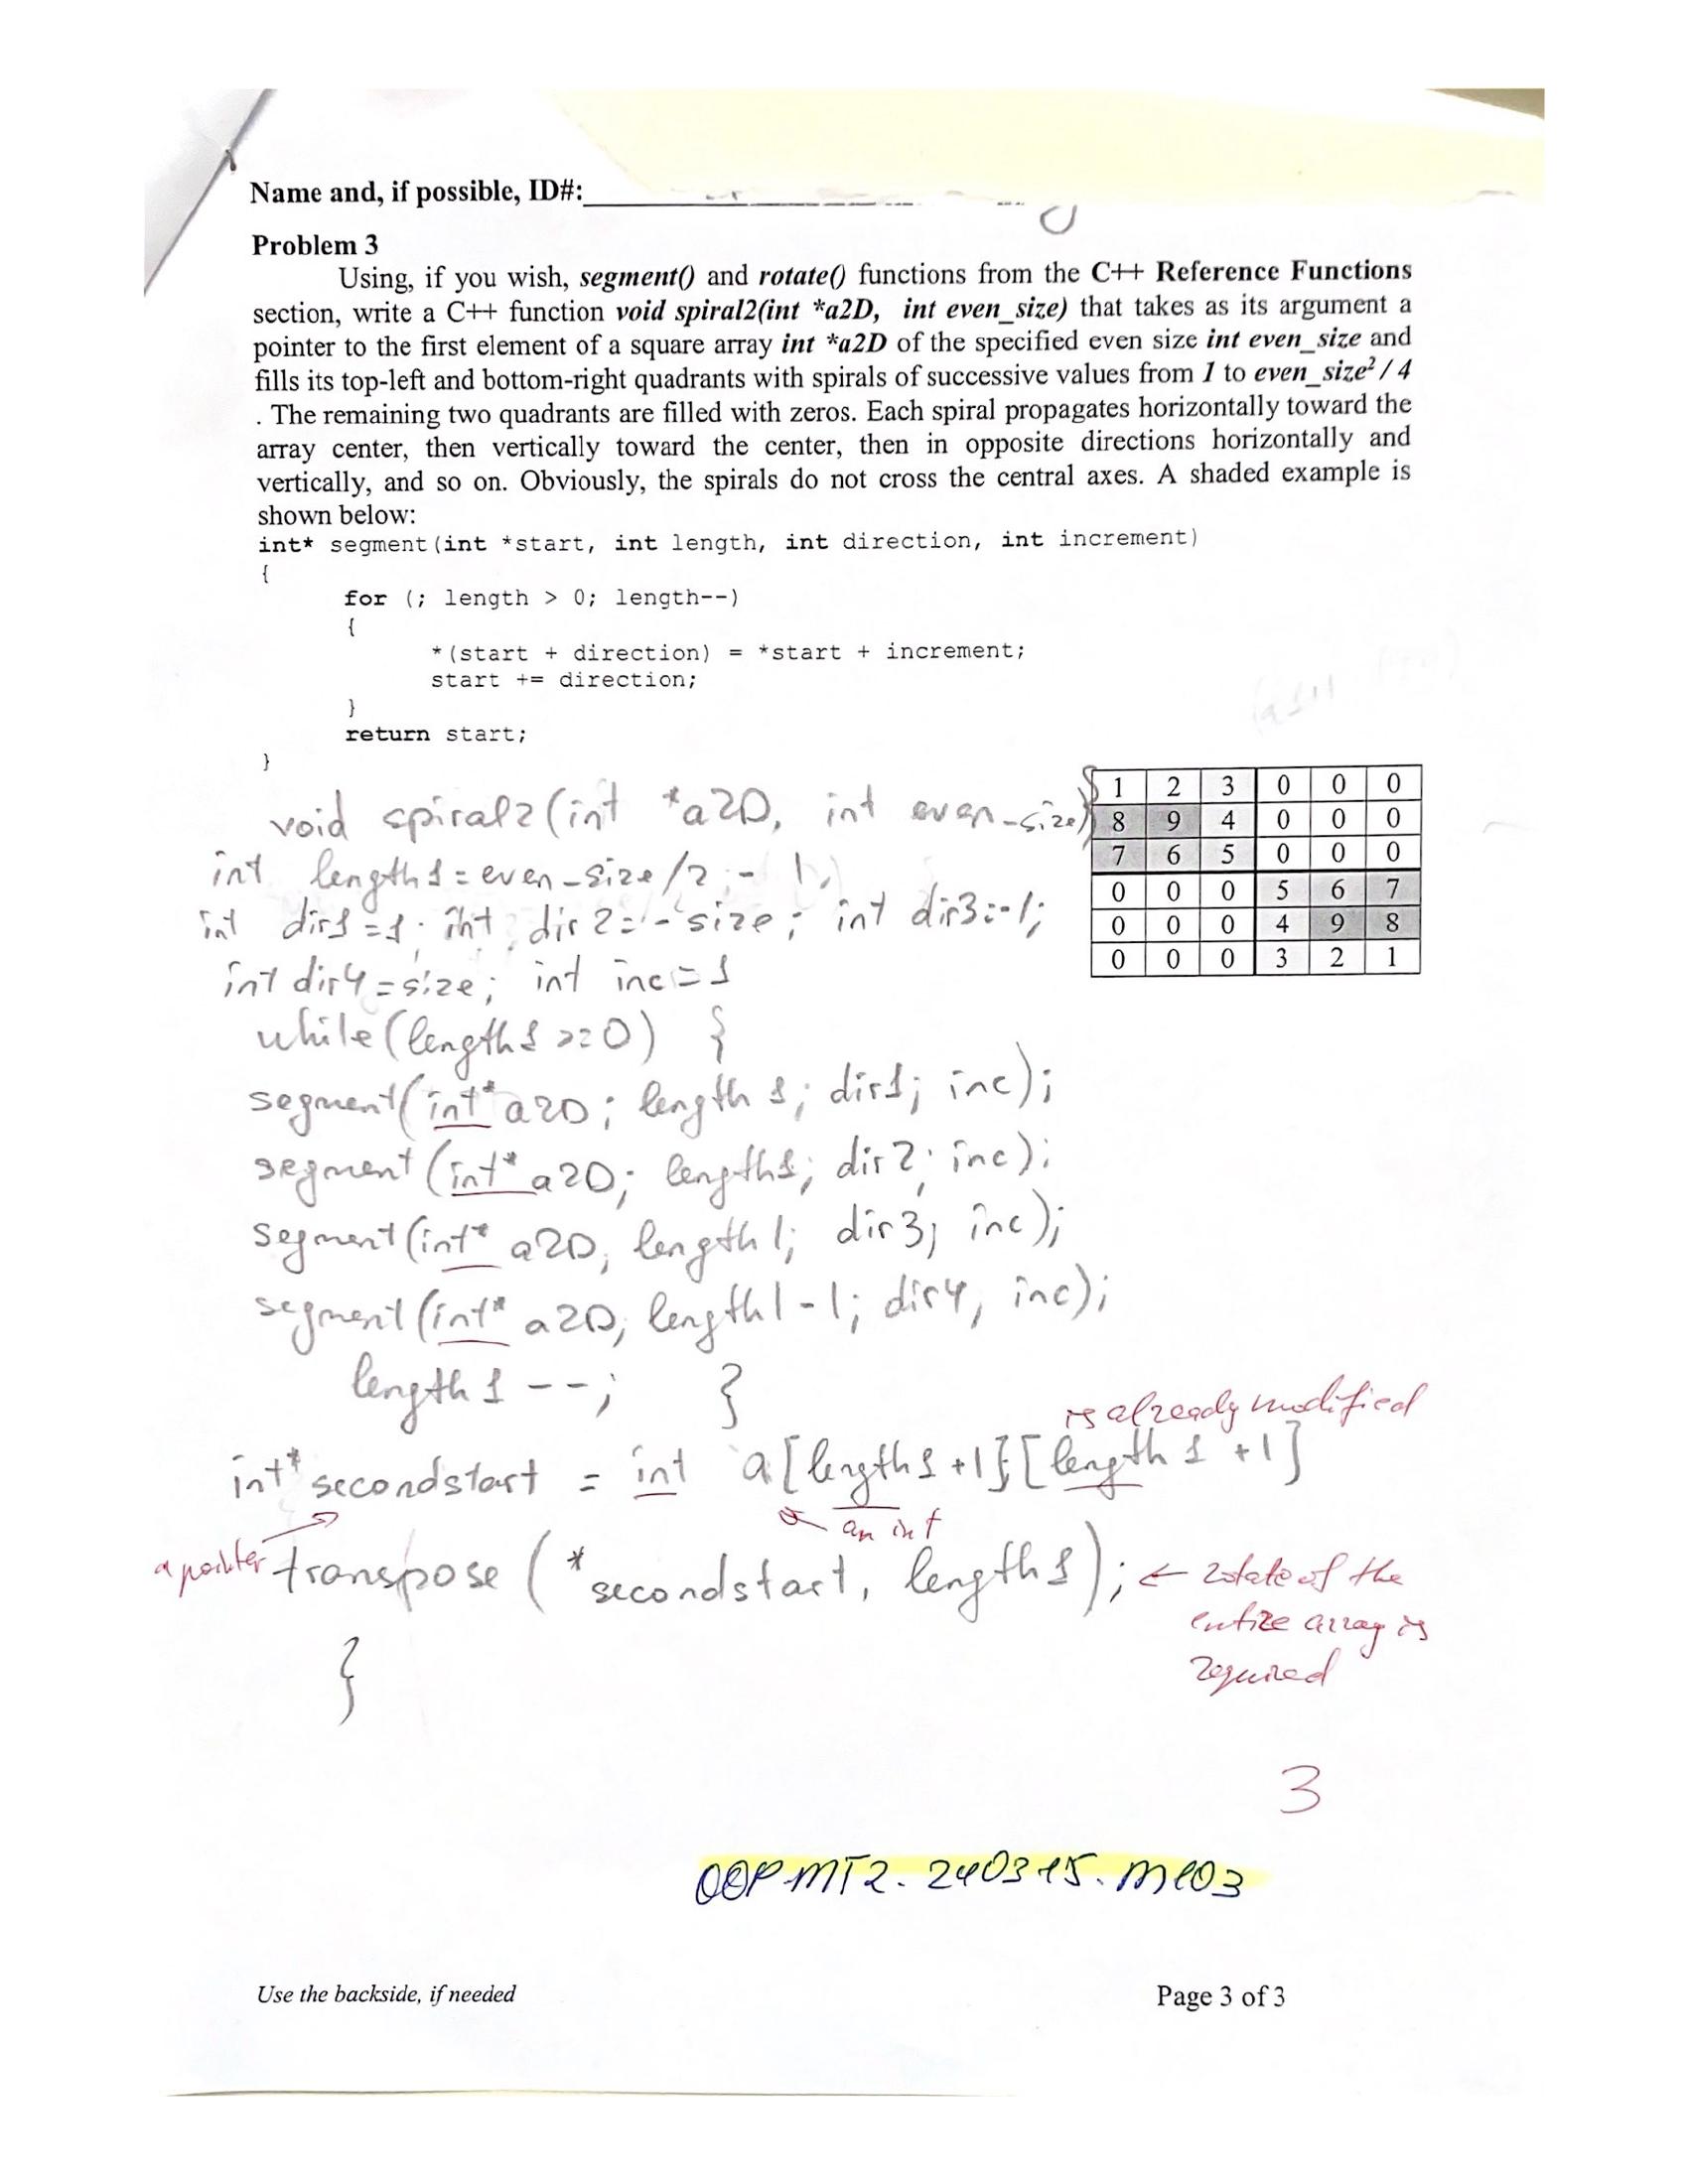 Name and, if possible, ID#:
Problem 3
Using, if you wish, segment() and rotate() functions from the C++ Reference Functions
section, write a C++ function void spiral2(int *a2D, int even_size) that takes as its argument a
pointer to the first element of a square array int *a2D of the specified even size int even_size and
fills its top-left and bottom-right quadrants with spirals of successive values from 1 to even_size² / 4
. The remaining two quadrants are filled with zeros. Each spiral propagates horizontally toward the
array center, then vertically toward the center, then in opposite directions horizontally and
vertically, and so on. Obviously, the spirals do not cross the central axes. A shaded example is
shown below:
int* segment(int *start, int length, int direction, int increment)
{
for (; length > 0; length--)
{
*(start + direction) = *start + increment;
start += direction;
}
return start;
}
1 2 3 0 0 0
8 9 4 0 0 0
7 6 5 0 0 0
0 0 0 5 6 7
0 0 0 4 9 8
0 0 0 3 2 1
void spiral2(int *a2D, int even_size){
int length1 = even_size/2 - 1;
int dir1 = 1; int dir2 = -size; int dir3 = -1;
int dir4 = size; int inc = 1
while(length1 >=0) {
segment(int* a2D; length1; dir1; inc);
segment(int* a2D; length1; dir2; inc);
segment(int* a2D, length1; dir3; inc);
segment(int* a2D, length1-1; dir4, inc);
length1 --; }
is already modified
int* secondstart = int a[length1+1][length1+1]
an int
a pointer
transpose(*secondstart, length1); ← rotate of the
entire array is
required
}
3
OOP.MT2.240315.M103
Use the backside, if needed
Page 3 of 3